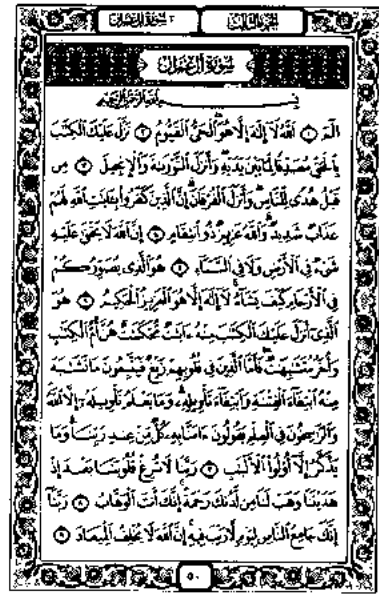 الجزء الثالث ٣ سورة آل عمران
سورة آل عمران
بسم الله الرحمن الرحيم
الٓمٓ ۝١ ٱللَّهُ لَآ إِلَٰهَ إِلَّا هُوَ ٱلْحَىُّ ٱلْقَيُّومُ ۝٢ نَزَّلَ عَلَيْكَ ٱلْكِتَٰبَ
بِٱلْحَقِّ مُصَدِّقًا لِّمَا بَيْنَ يَدَيْهِ وَأَنزَلَ ٱلتَّوْرَىٰةَ وَٱلْإِنجِيلَ ۝٣ مِن
قَبْلُ هُدًى لِّلنَّاسِ وَأَنزَلَ ٱلْفُرْقَانَ إِنَّ ٱلَّذِينَ كَفَرُوا۟ بِـَٔايَٰتِ ٱللَّهِ لَهُمْ
عَذَابٌ شَدِيدٌ وَٱللَّهُ عَزِيزٌ ذُو ٱنتِقَامٍ ۝٤ إِنَّ ٱللَّهَ لَا يَخْفَىٰ عَلَيْهِ
شَىْءٌ فِى ٱلْأَرْضِ وَلَا فِى ٱلسَّمَآءِ ۝٥ هُوَ ٱلَّذِى يُصَوِّرُكُمْ
فِى ٱلْأَرْحَامِ كَيْفَ يَشَآءُ لَآ إِلَٰهَ إِلَّا هُوَ ٱلْعَزِيزُ ٱلْحَكِيمُ ۝٦ هُوَ
ٱلَّذِىٓ أَنزَلَ عَلَيْكَ ٱلْكِتَٰبَ مِنْهُ ءَايَٰتٌ مُّحْكَمَٰتٌ هُنَّ أُمُّ ٱلْكِتَٰبِ
وَأُخَرُ مُتَشَٰبِهَٰتٌ فَأَمَّا ٱلَّذِينَ فِى قُلُوبِهِمْ زَيْغٌ فَيَتَّبِعُونَ مَا تَشَٰبَهَ
مِنْهُ ٱبْتِغَآءَ ٱلْفِتْنَةِ وَٱبْتِغَآءَ تَأْوِيلِهِۦ وَمَا يَعْلَمُ تَأْوِيلَهُۥٓ إِلَّا ٱللَّهُ
وَٱلرَّٰسِخُونَ فِى ٱلْعِلْمِ يَقُولُونَ ءَامَنَّا بِهِۦ كُلٌّ مِّنْ عِندِ رَبِّنَا وَمَا
يَذَّكَّرُ إِلَّآ أُو۟لُوا۟ ٱلْأَلْبَٰبِ ۝٧ رَبَّنَا لَا تُزِغْ قُلُوبَنَا بَعْدَ إِذْ
هَدَيْتَنَا وَهَبْ لَنَا مِن لَّدُنكَ رَحْمَةً إِنَّكَ أَنتَ ٱلْوَهَّابُ ۝٨ رَبَّنَآ
إِنَّكَ جَامِعُ ٱلنَّاسِ لِيَوْمٍ لَّا رَيْبَ فِيهِ إِنَّ ٱللَّهَ لَا يُخْلِفُ ٱلْمِيعَادَ ۝٩
٥٠